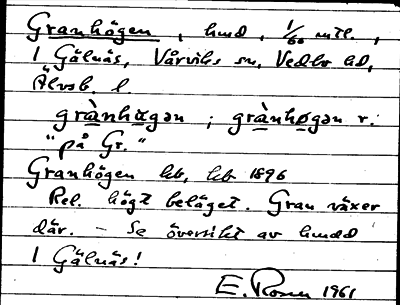 Granhögen, hmd, 1/60 mtl.,
I Gälnäs, Vårviks sn, Vedbo hd,
Älvsb. l.
grànhøgən ; grànhøgən r.
"på Gr."
Granhögen hb, hb 1896
Rel. högt beläget. Gran växer
där. - Se översikt av hmdd
I Gälnäs!
E. Rosen 1961